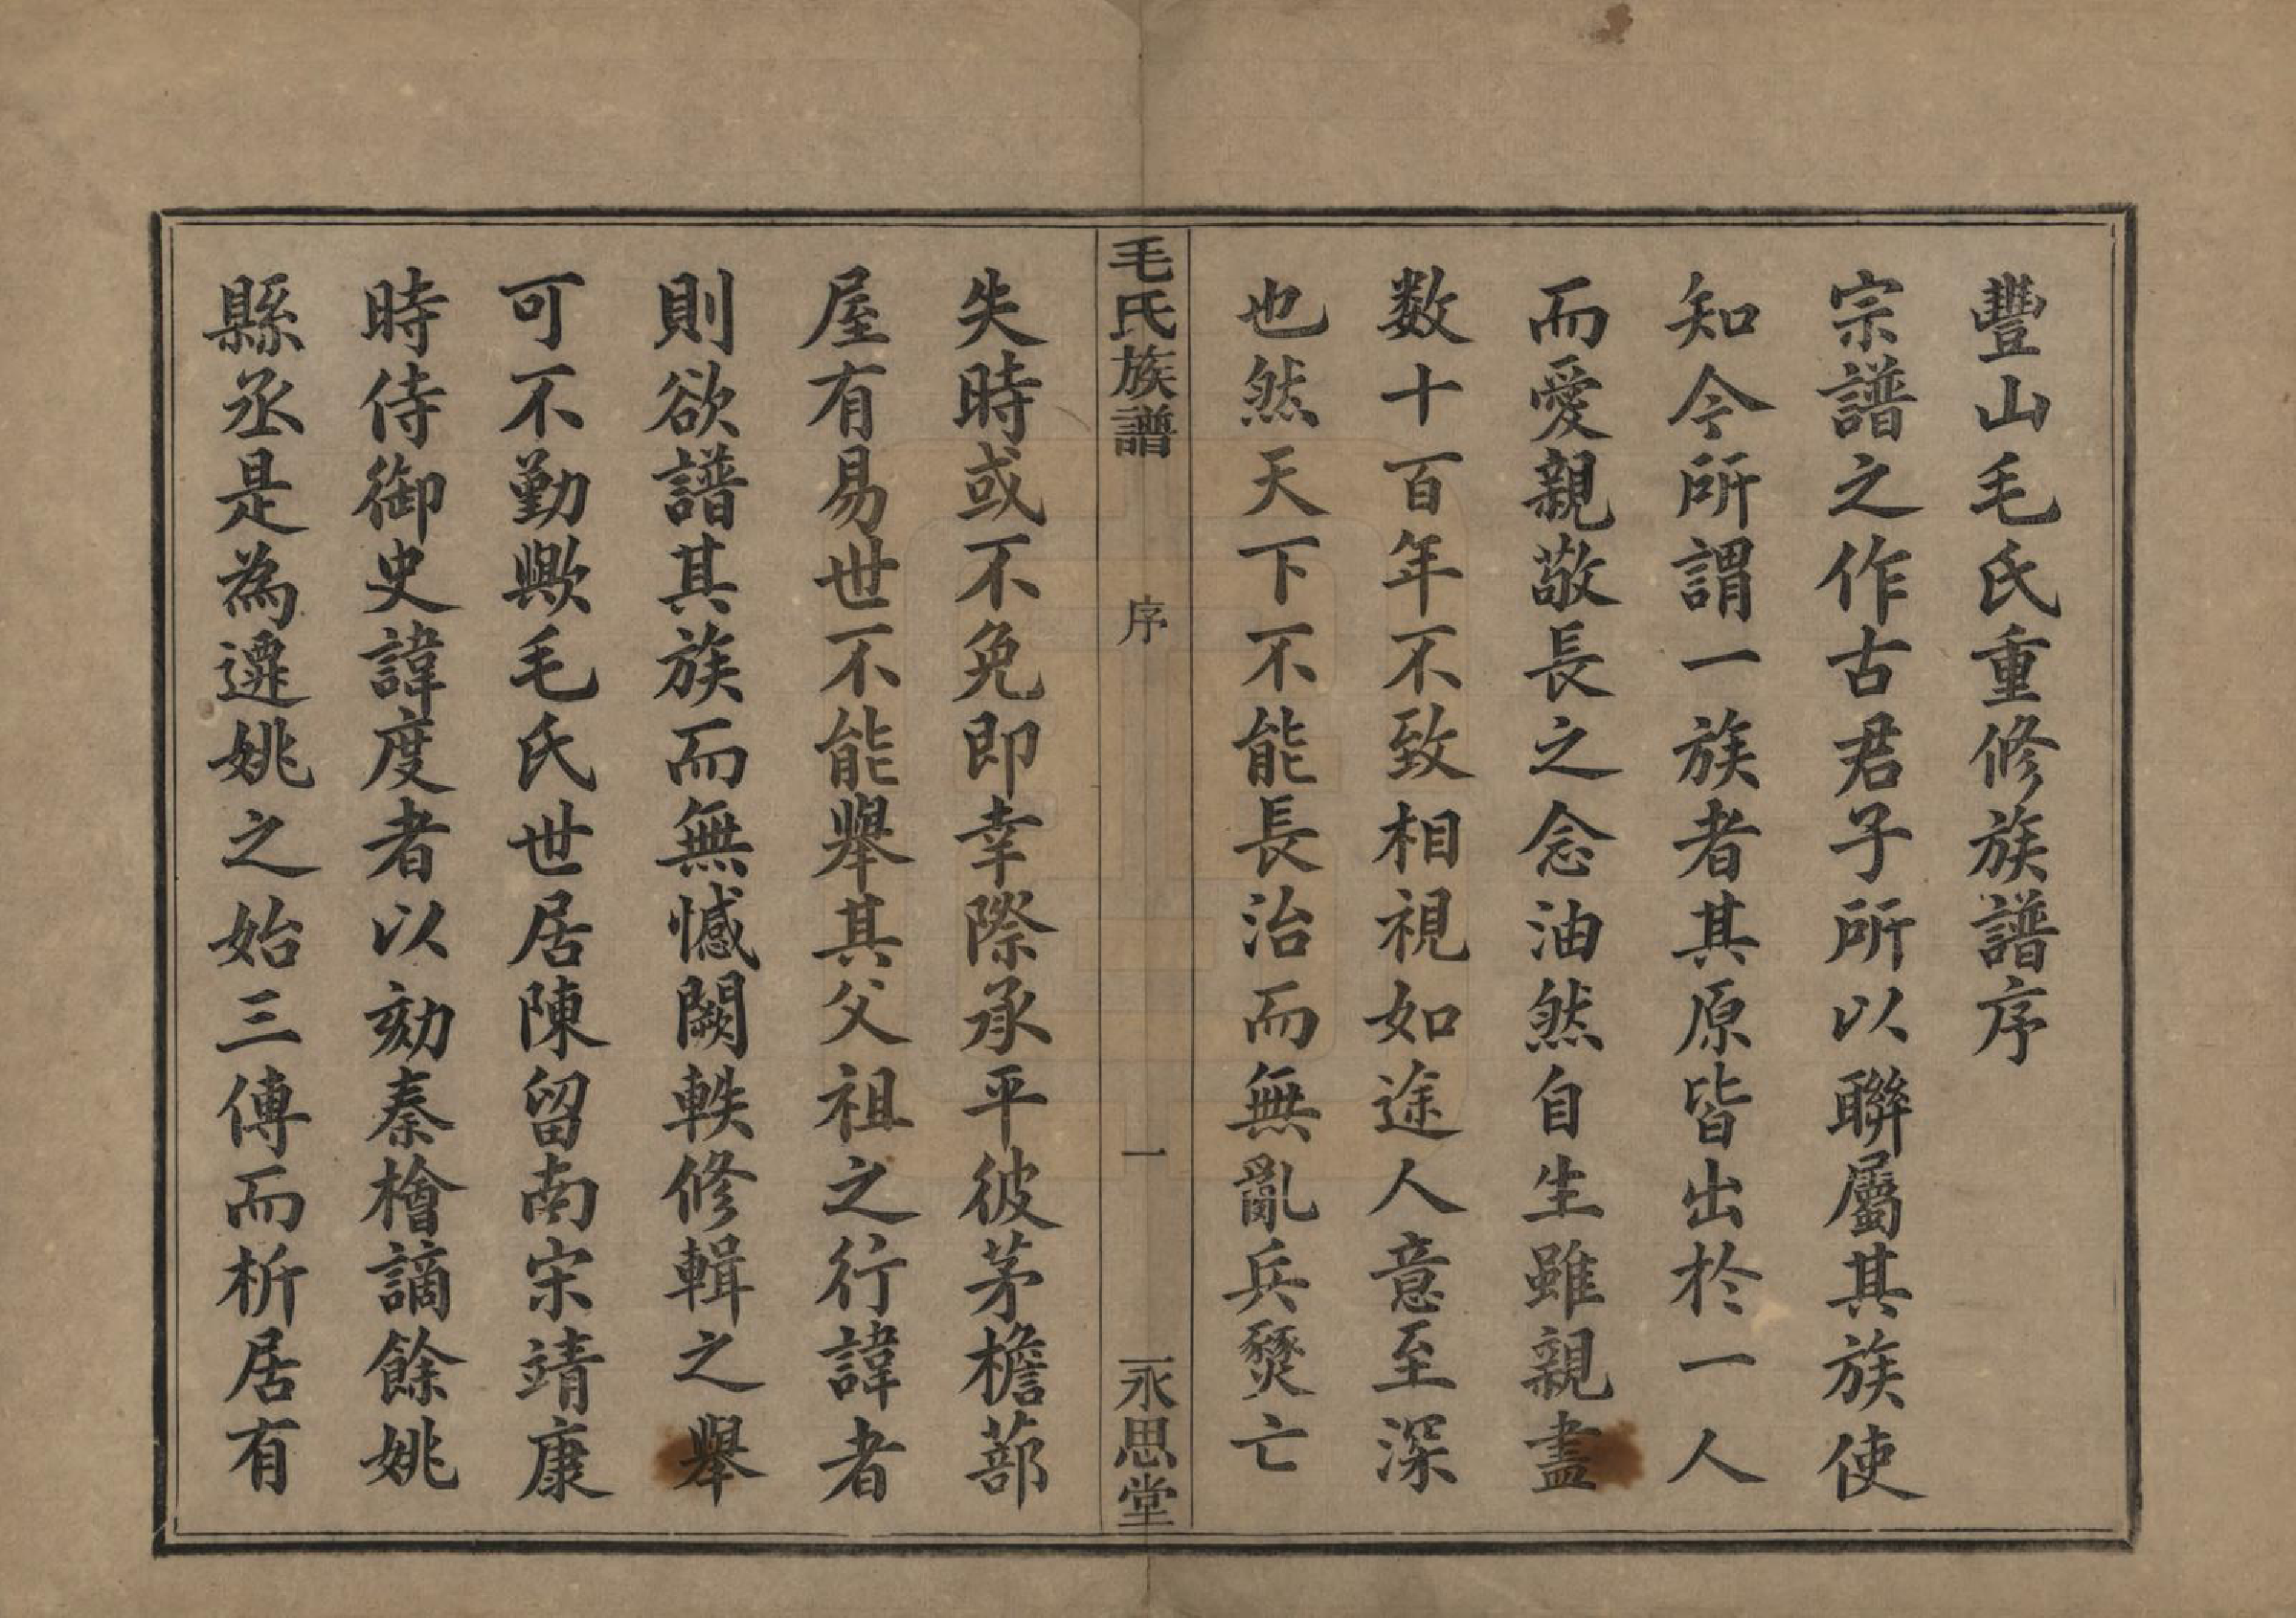 豐山毛氏重修族譜序
宗譜之作古君子所以聯屬其族使
知今所謂一族者其原皆出於一人
而愛親敬長之念油然自生雖親盡
数十百年不致相視如途人意至深
也然天下不能長治而無亂兵燹亡
毛氏族譜
序
一
永思堂
失時或不免即幸際承平彼茅檐蔀
屋有易世不能舉其父祖之行諱者
則欲譜其族而無憾闕軼修輯之舉
可不勤歟毛氏世居陳留南宋靖康
時侍御史諱度者以劾秦檜謫餘姚
縣丞是為遷姚之始三傳而析居有